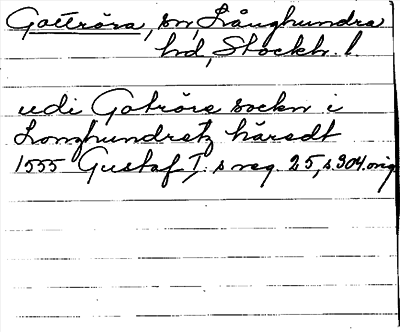 Gottröra, sn, Långhundra
hd, Stockh. l.
udi Gotröre sockn i
Longhundretz häredt
1555 Gustaf I:s reg. 25, s. 304. orig